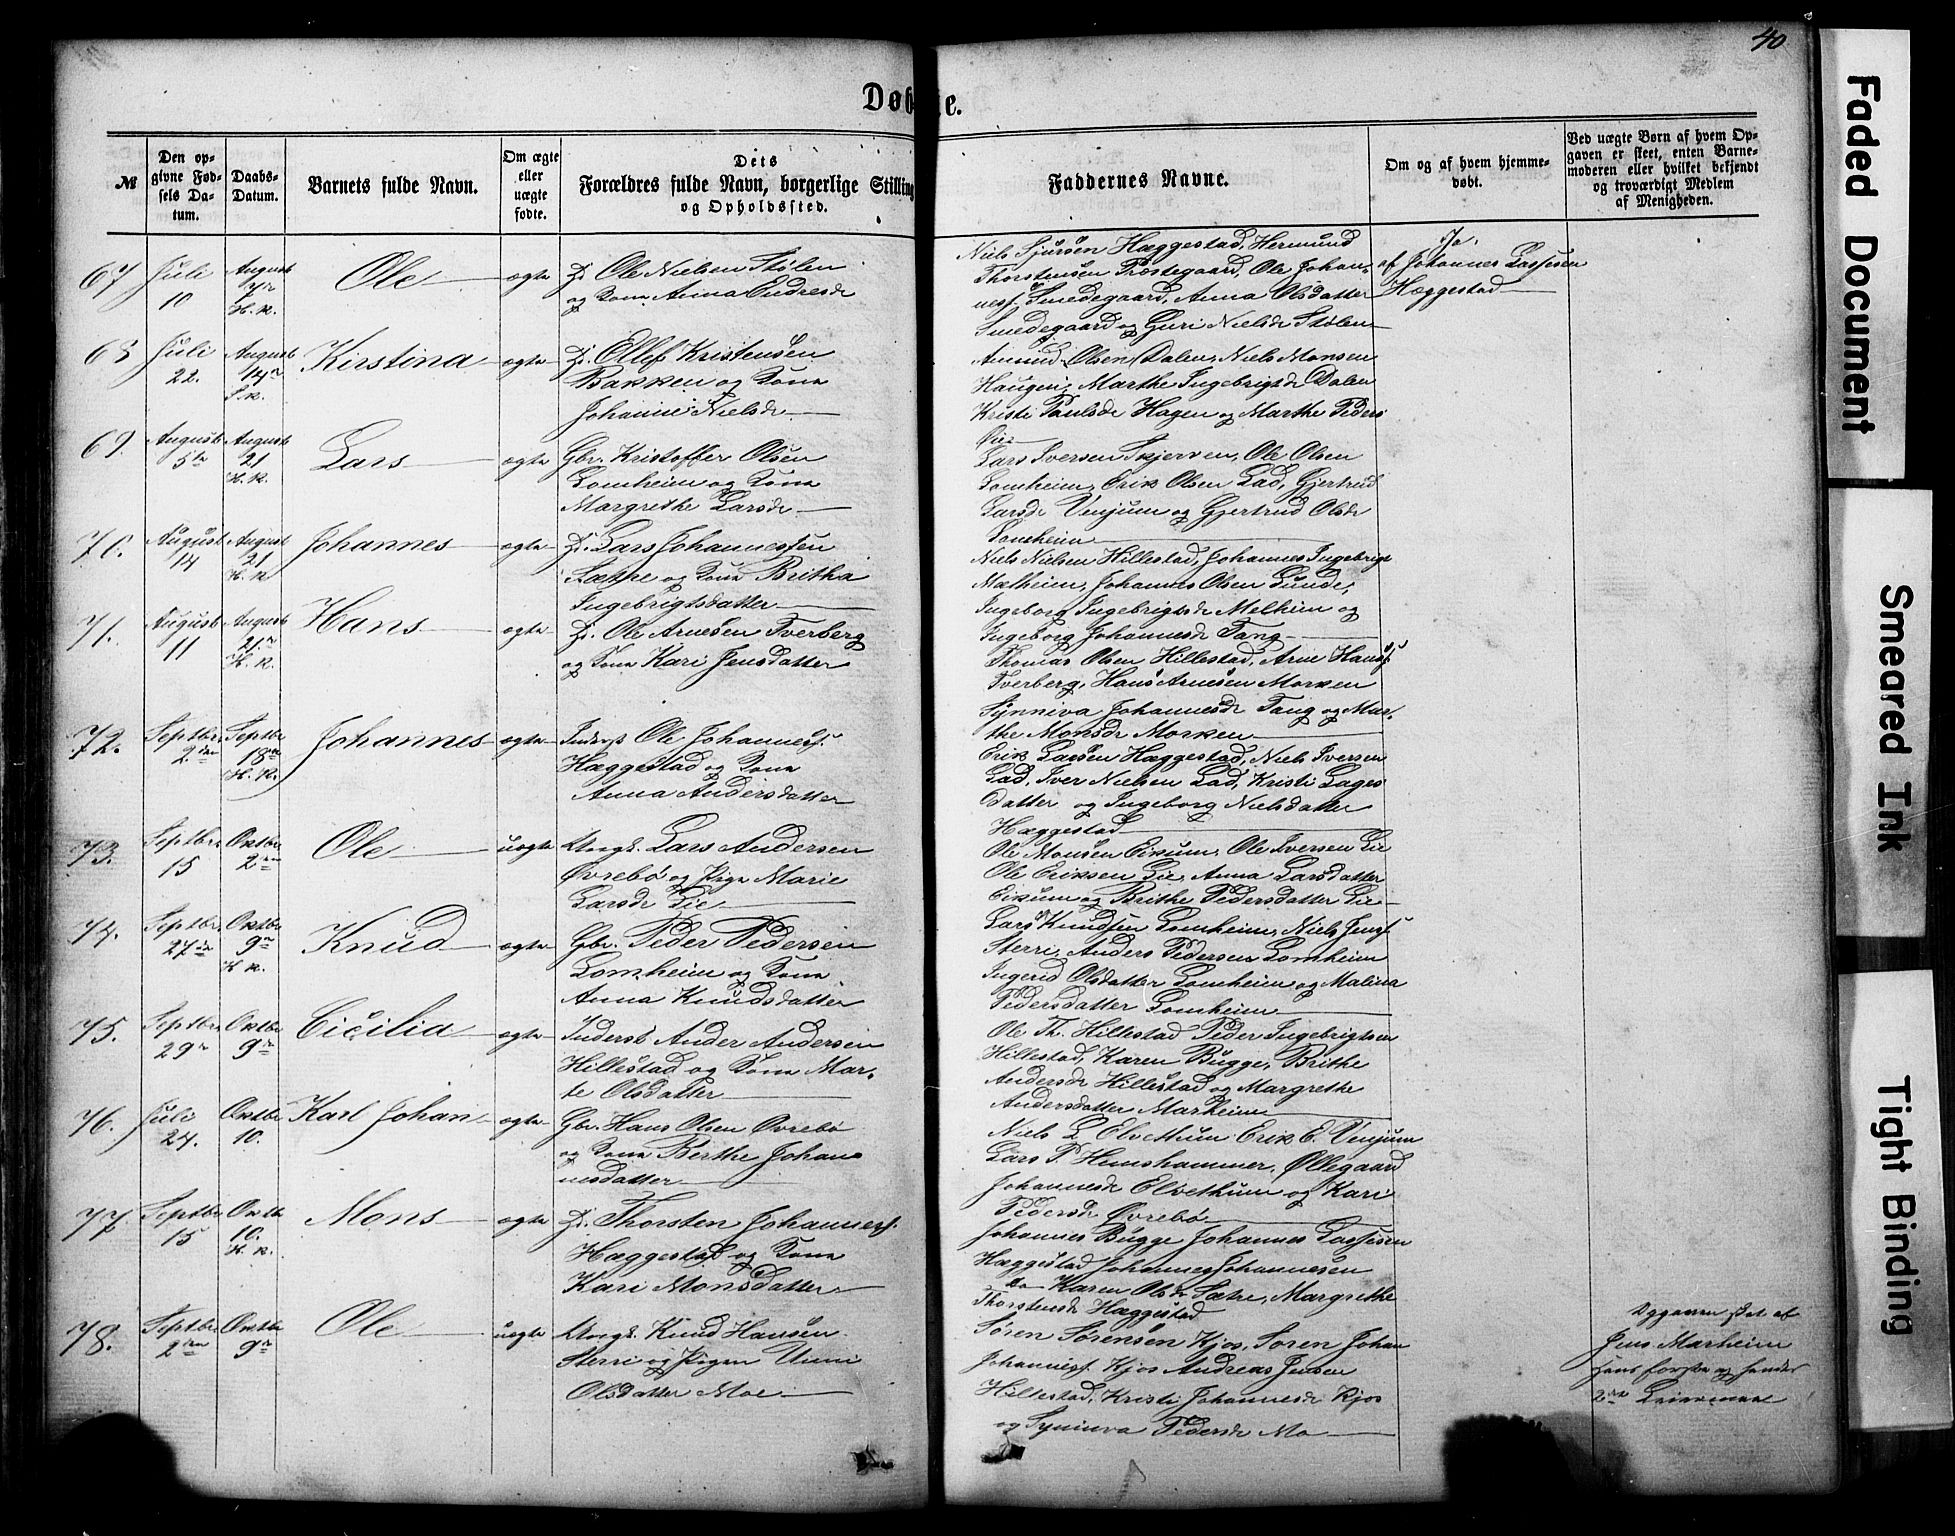 40
Døbte.
№
Den op-
givne Fød-
sels Da-
tum.
Daabs-
Datum.
Barnets fulde Navn.
Om ægte
eller
uægte
fødte.
Dets
Forældres fulde Navn, borgerlige Stilling
og Opholdssted.
Faddernes Navne.
Om og af hvem hjemme-
døbt.
Ved uægte Børn af hvem Op-
gaven er skeet, enten Barne-
moderen eller hvilket bekjendt
og troværdigt Medlem
af Menigheden.
67 Juli
10
August
H. K.
Ole
ægte
Ole Nielsen Stølen
og Kone Anna Endresdr
Niels Sjursen Hæggestad, Hermund
Thorstensen Præstegaard, Ole Johan-
nesf. Smedegaard, Anna Olsdatter
Smedegaard og Guri Nielsdr Stølen
Ja,
af Johannes Lassesen
Hæggestad
68 Juli
22.
August
14
Kirstina
ægte
Ellef Kristensen
Bakken og Kone
Johanne Nielsdr
Amund Olsen Dalen, Niels Monsen
Haugen, Marthe Ingebrigtsdr Dalen
Kristi Paulsdr Hagen og Marthe Peders
69. August
5te
August
21
H. K.
Lars
ægte
Gbr. Kristoffer Olsen
Lomheim og Kone
Margrethe Larsdr
Lars Iversen Skjerven, Ole Olsen
Lomheim, Erik Olsen Lad, Gjertrud
Larsdr Venjum og Gjertrud Olsdr
Lomheim
70. August
14
August
21
H. K.
Johannes
ægte
Lars Johannessen
Sætre og Kone Britha
Ingebrigtsdatter
Niels Nielsen Hillestad, Johannes Ingebrigt
Melheim, Johannes Olsen Lunde,
Ingeborg Ingebrigtsdr Melheim og
Ingeborg Johannesdr Tang
71. August
11
August
21
H. K.
Hans
ægte
Ole Arnesen Tverberg
og Kone Kari Jensdatter
Thomas Olsen Hillestad, Arne Hansf.
Tverberg, Hans Arnesen Morken
Synniva Johannesdr Tang og Mar-
the Monsdr Morken
72. Septbr.
2den
Septbr
18
H. K.
Johannes
ægte
Inderst Ole Johannesf.
Hæggestad og Kone
Anna Andersdatter
Erik Larsen Hæggestad, Niels Iversen
Lad, Iver Nielsen Lad, Kristi Lages
datter og Ingeborg Nielsdatter
Hæggestad
73. Septbr.
15
Oktbr
2den
Ole
uægte
Ungk. Lars Andersen
Øvrebø og Pige Marie
Larsdr Lie
Ole Monsen Eikum, Ole Iversen Lie
Ole Eriksen Lie, Anna Larsdatter
Eikum og Brithe Pedersdatter Lie
74. Septbr.
27de
Oktbr
9
H. K.
Knud
ægte
Gbr. Peder Pedersen
Lomheim og Kone
Anna Knudsdatter
Lars Knudsen Lomheim, Niels Jensf.
Sterri, Anders Pedersen Lomheim
Ingerid Olsdatter Lomheim og Malina
Pedersdatter Lomheim
75. Septbr.
29
Oktbr
9de
Cicilia
ægte
Inderst Ander Andersen
Hillestad og Kone Mar-
te Olsdatter
Ole Th. Hillestad Peder Ingebrigtsen
Hillestad, Karen Bugge, Brithe
Andersdr Hillestad og Margrethe
Andersdatter Marheim
76. Juli
24.
Oktbr
10.
Karl Johan
ægte
Gbr. Hans Olsen Øvrebø
og Kone Berthe Johan
nesdatter
Niels L Elvethun Erik E. Venjum
Lars P. Hemshammer, Øllegaard
Johannesdr Elvethun og Kari
Pedersdr Øvrebø
77. Septbr.
15
Oktbr
10.
H. K.
Mons
ægte
Thorsten Johannesf.
Hæggestad og Kone
Kari Monsdatter
Johannes Bugge Johannes Lassesen
Hæggestad Johannes Johannesen
do Karen Olsdr Sætre, Margrethe
Thorstensdr Hæggestad
78. Septbr.
2den
Oktbr
9
Ole
uægte
Ungk. Knud Hansen
Sterri og Pigen Unni
Olsdatter Moe
Søren Sørensen Kjos, Soren Johan
Johannesf. Kjos Andreas Jensen
Hillestad, Kristi Johannesdr Kjos
og Synniva Pedersdr Mo
Opgaven skeet af
Jens Marheim
Hans første og hendes
2det Leiermaal
Faded Document
Smeared Ink
Tight Binding